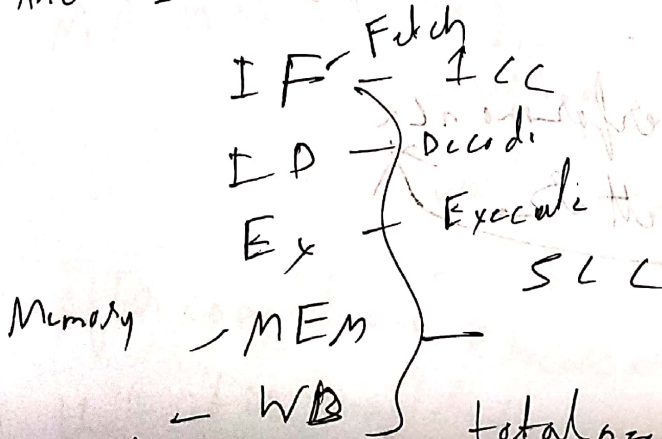 Fetch
IF - 1 CC
ID - Decode
Ex - Execute
5 CC
Memory - MEM
- WB
total no